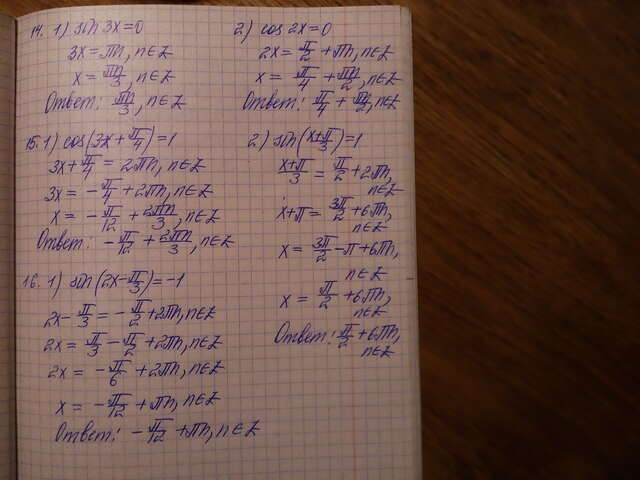 14. 1) sin 3x = 0
3x = πn, n∈Z
x = πn/3, n∈Z
Ответ: πn/3, n∈Z
2) cos 2x = 0
2x = π/2 + πn, n∈Z
x = π/4 + πn/2, n∈Z
Ответ: π/4 + πn/2, n∈Z
15. 1) cos(3x + π/4) = 1
3x + π/4 = 2πn, n∈Z
3x = -π/4 + 2πn, n∈Z
x = -π/12 + 2πn/3, n∈Z
Ответ: -π/12 + 2πn/3, n∈Z
2) sin(x+π/3) = 1
x+π/3 = π/2 + 2πn,
n∈Z
x+π = 3π/2 + 6πn,
n∈Z
x = 3π/2 - π + 6πn,
n∈Z
x = π/2 + 6πn,
n∈Z
Ответ: π/2 + 6πn,
n∈Z
16. 1) sin(2x - π/3) = -1
2x - π/3 = -π/2 + 2πn, n∈Z
2x = π/3 - π/2 + 2πn, n∈Z
2x = -π/6 + 2πn, n∈Z
x = -π/12 + πn, n∈Z
Ответ: -π/12 + πn, n∈Z